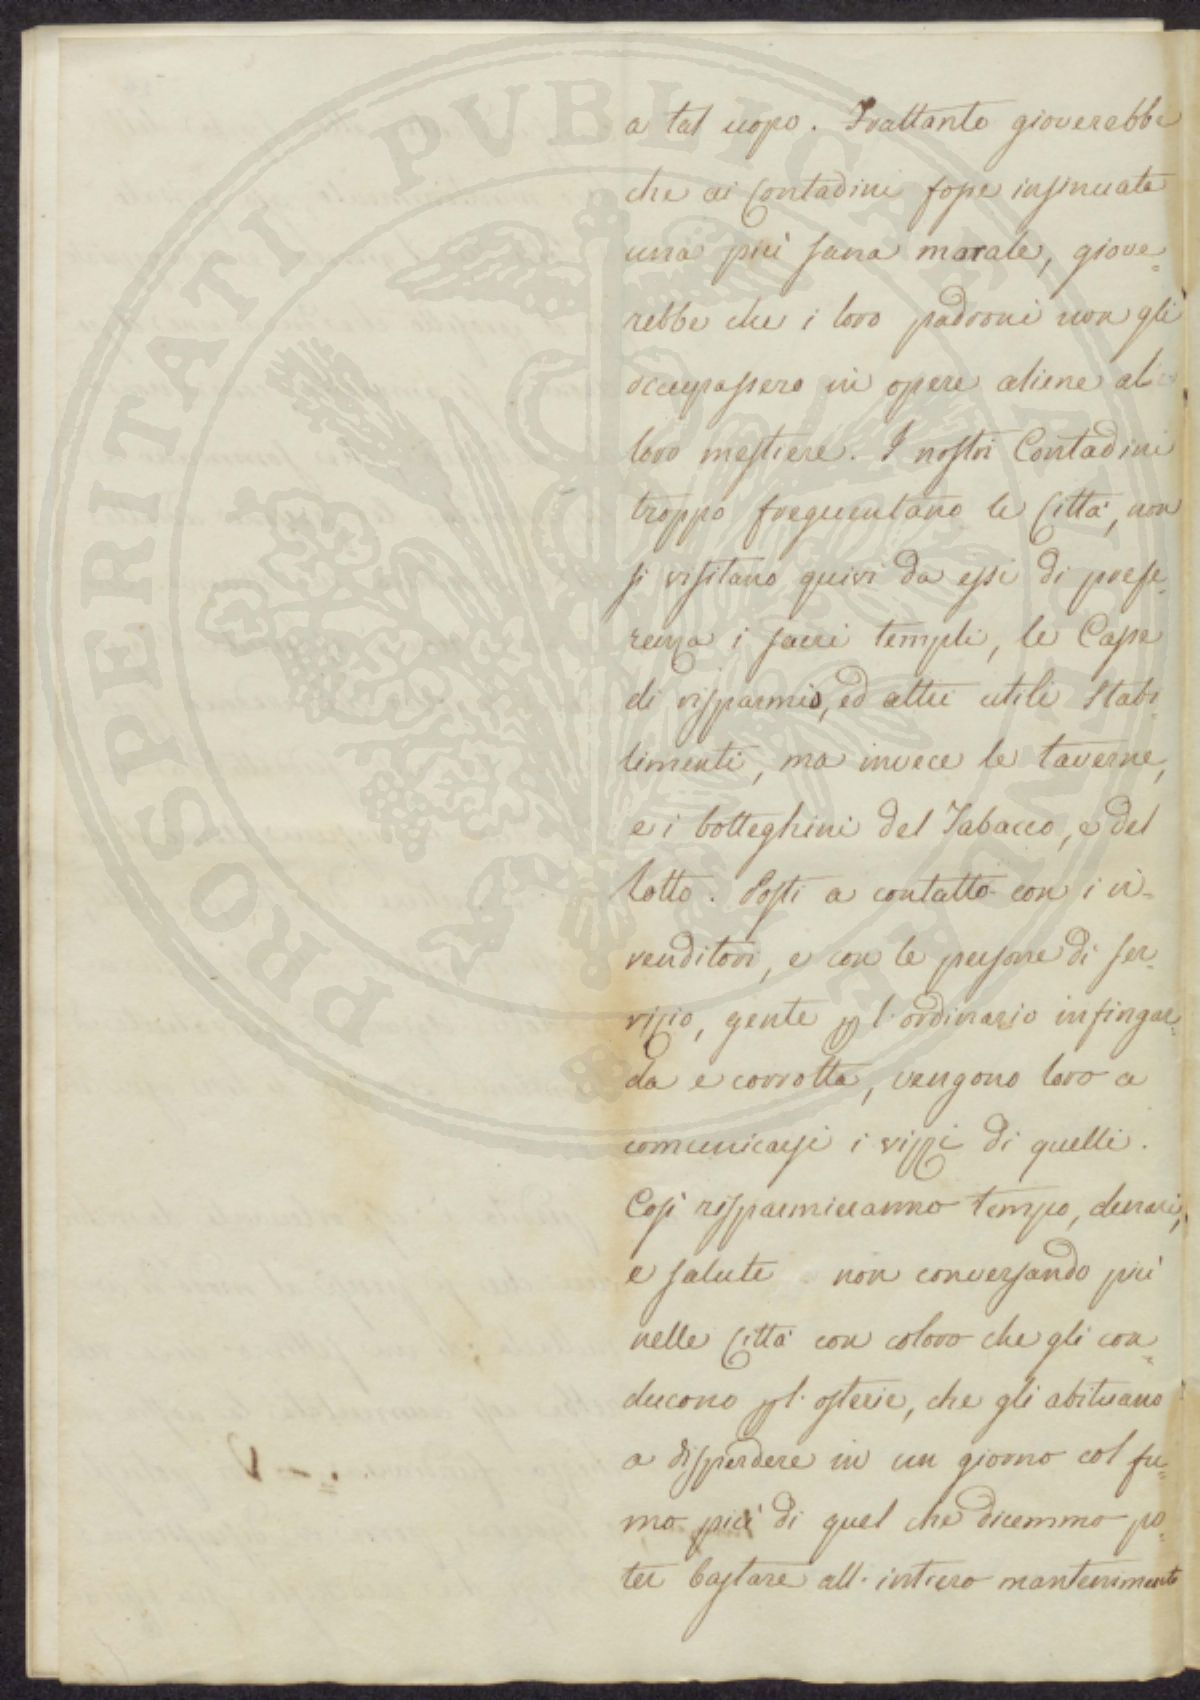 PROSPERITATI PUBLICAE AUGENDAE
a tal uopo. Frattanto gioverebbe
che ai Contadini fosse insinuata
una più sana morale, giove=
rebbe che i loro padroni non gli
occupassero in opere aliene al
loro mestiere. I nostri Contadini
troppo frequentano le Città, non
si visitano quivi da essi di prefe=
renza i sacri templi, le Casse
di risparmio, ed altri utili Stabi=
limenti, ma invece le taverne,
e i botteghini del Tabacco, e del
lotto. Posti a contatto con i ri=
venditori, e con le persone di ser=
vizio, gente p l'ordinario infingar=
da e corrotta, vengono loro a
comunicarsi i vizzi di quelli.
Così risparmieranno tempo, denari,
e salute non conversando più
nelle Città con coloro che gli con=
ducono p l'osterie, che gli abituano
a disperdere in un giorno col fu=
mo più di quel che dicemmo po=
ter bastare all'intiero mantenimento